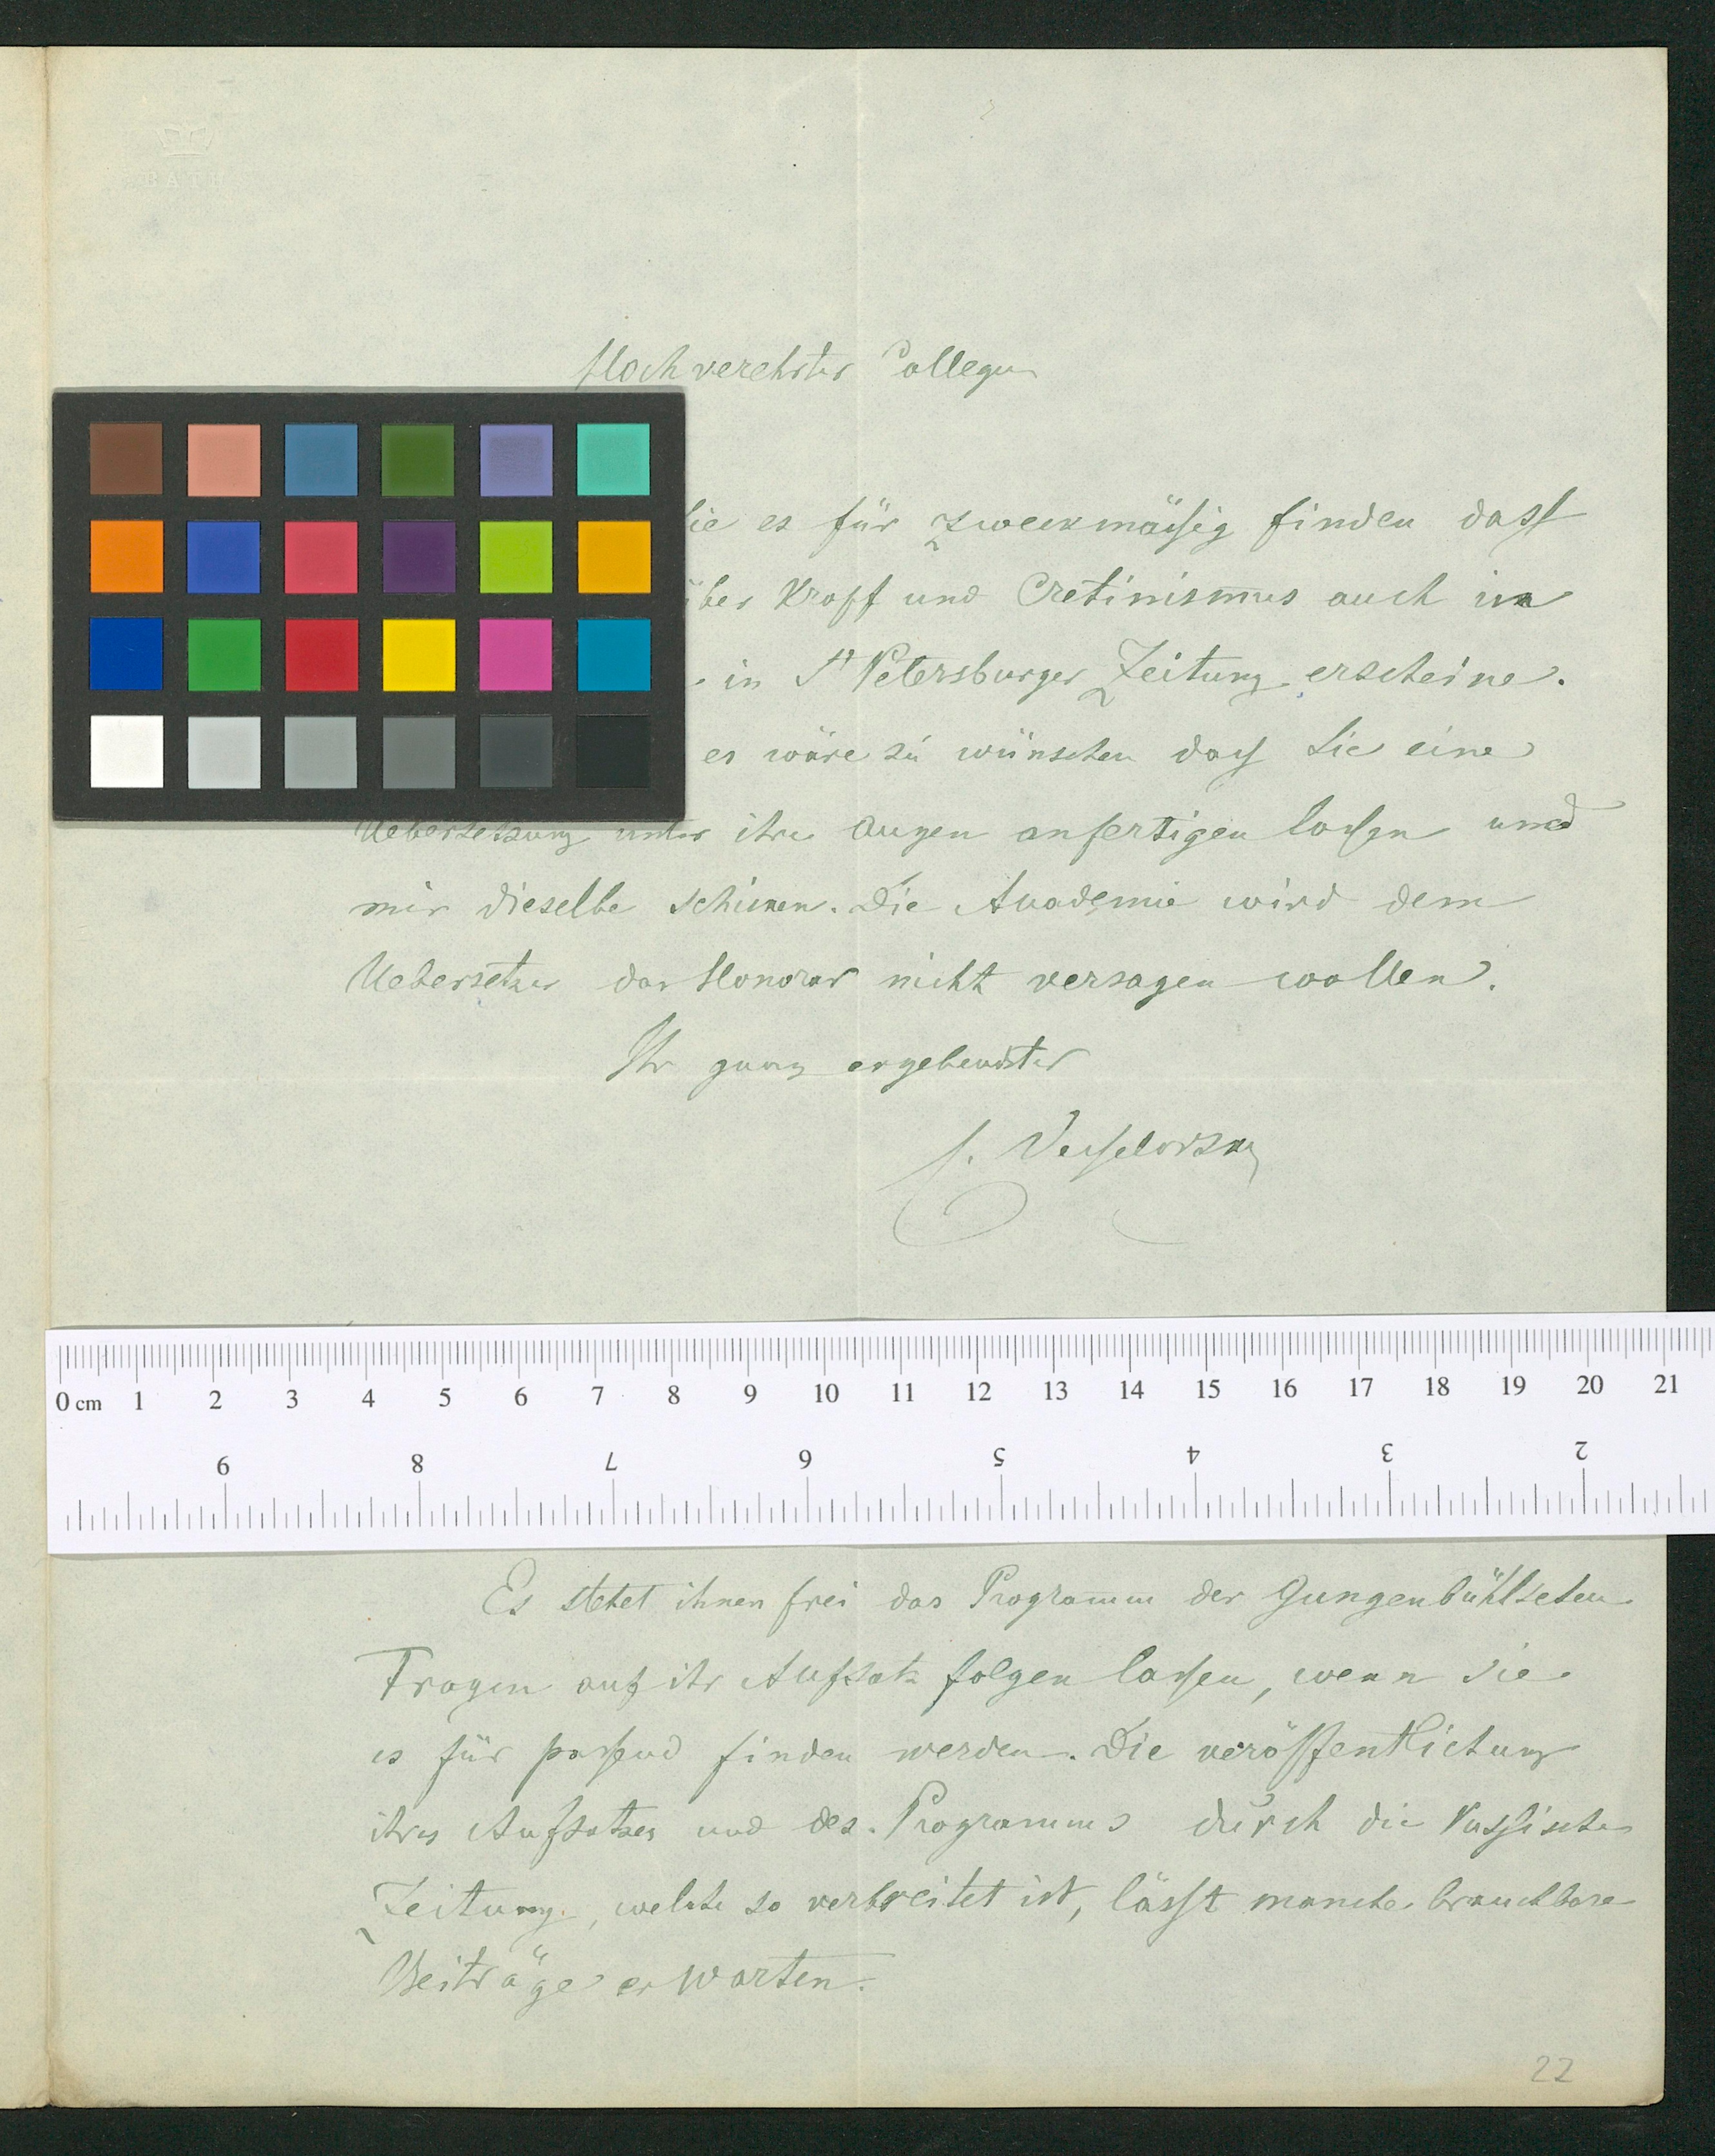 BATH
Hochverehrter College
Sie es für zweckmäßig finden dass
über Kropf und Cretinismus auch in
in St Petersburger Zeitung erscheine.
es wäre zu wünschen dass Sie eine
Uebersetzung unter ihre Augen anfertigen lassen und
mir dieselbe schicken. Die Academie wird dem
Uebersetzer das Honorar nicht versagen wollen.
Ihr ganz ergebenster
Wesselovsky
0 cm 1 2 3 4 5 6 7 8 9 10 11 12 13 14 15 16 17 18 19 20 21
9 8 7 6 5 4 3 2
Es stehet ihnen frei das Programm der
Fragen auf ihr Aufsatz folgen lassen, wenn Sie
es für passend finden werden. Die veröffentlichung
ihres Aufsatzes und des Programms durch die Russische
Zeitung, welche so verbreitet ist, lässt manche brauchbare
Beiträge erwarten.
22